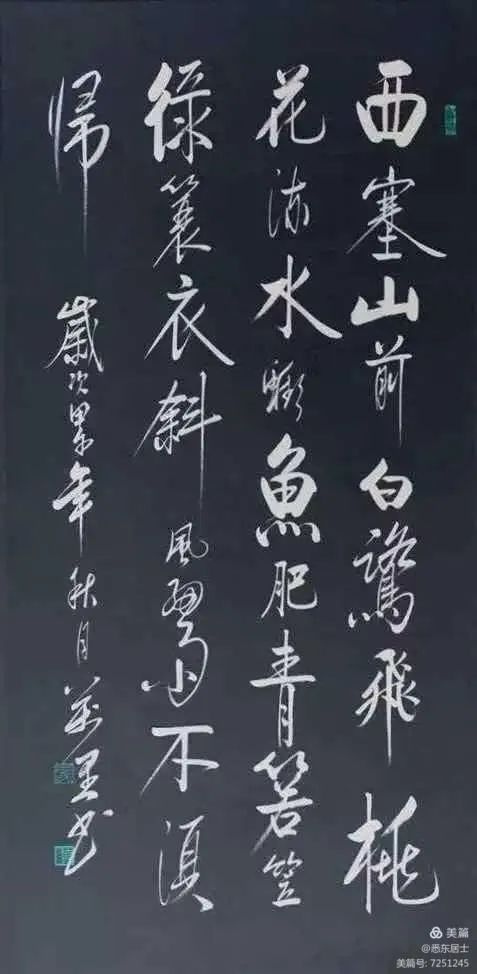 西塞山前白鷺飛桃
花流水鱖魚肥青箬笠
緑簑衣斜風細雨不須
帰 歲次年秋月萬里书
美篇
@悉东居士
美篇号: 7251245